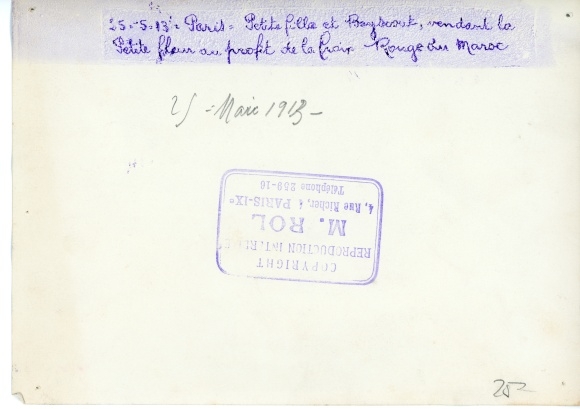 25-5-13 = Paris = Petite fille et Boyscout, vendant la
Petite fleur au profit de la Croix-Rouge au Maroc
25 - Mai 1913 -
COPYRIGHT
REPRODUCTION INTERDITE
M. ROL
4, Rue Richer, 4 PARIS-IXe
Téléphone 259-16
25